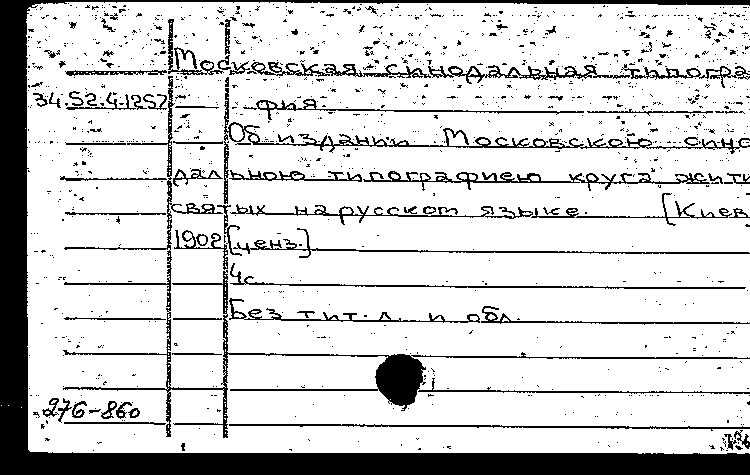 Московская синодальная типогра
34.52.4.1257 фия.
Об издании Московскою сино
дальною типографиею круга жити
святых на русском языке. [Киев
1902 [ценз.]
4с.
Без тит. л. и обл.
276-860